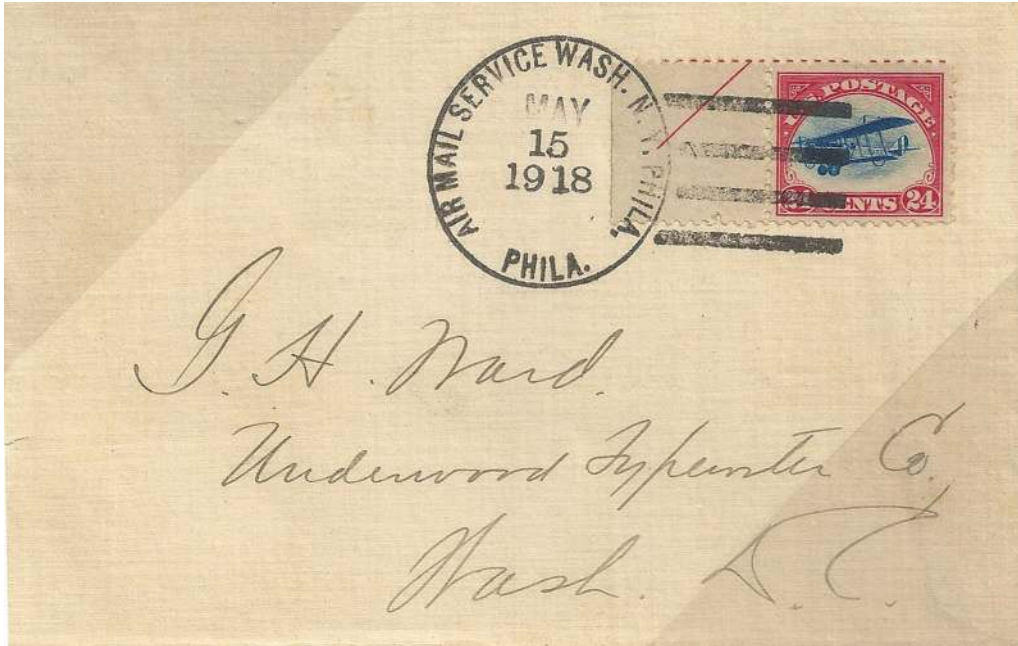 AIR MAIL SERVICE WASH. N.Y. PHILA.
MAY
15
1918
PHILA.
U.S. POSTAGE
24 CENTS 24
G. H. Ward.
Underwood Typewriter Co.
Wash. D. C.